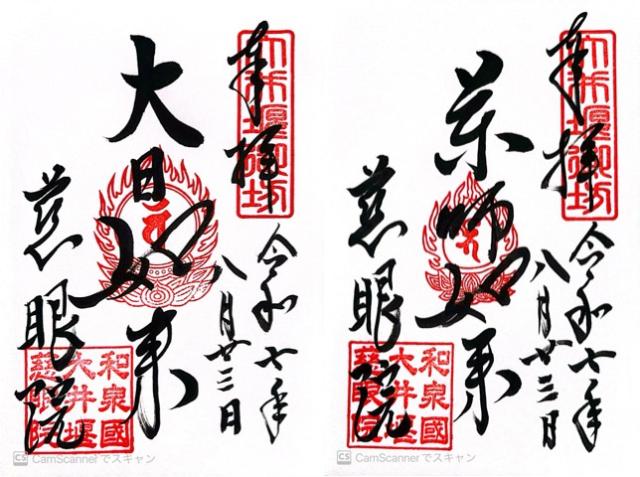 奉拝
大井堰御坊
令和七年
八月廿三日
大日如来
慈眼院
和泉國
大井堰
慈眼院
CS CamScannerでスキャン
奉拝
大井堰御坊
令和七年
八月廿三日
薬師如来
慈眼院
和泉國
大井堰
慈眼院
CS CamScannerでスキャン